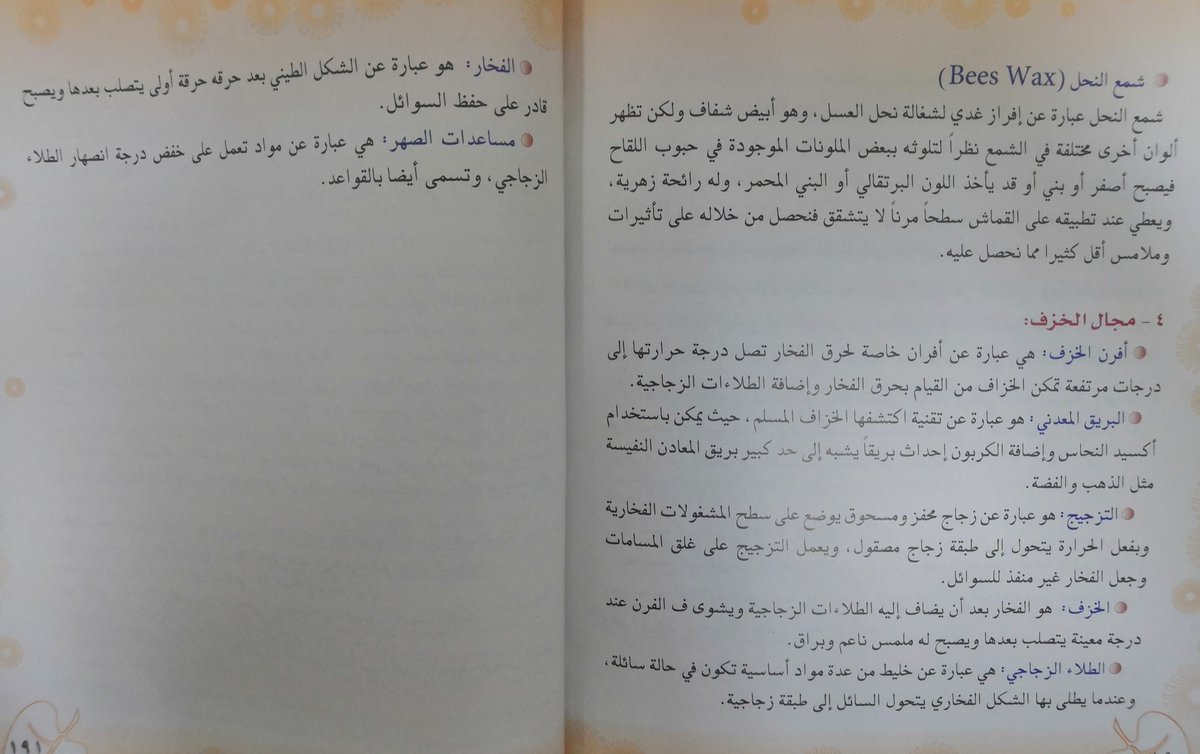 شمع النحل (Bees Wax)
شمع النحل عبارة عن إفراز غدي لشغالة نحل العسل، وهو أبيض شفاف ولكن تظهر
ألوان أخرى مختلفة في الشمع نظراً لتلوثه ببعض الملونات الموجودة في حبوب اللقاح
فيصبح أصفر أو بني أو قد يأخذ اللون البرتقالي أو البني المحمر، وله رائحة زهرية،
ويعطي عند تطبيقه على القماش سطحاً مرناً لا يتشقق فنحصل من خلاله على تأثيرات
وملامس أقل كثيرا مما نحصل عليه.
٤ - مجال الخزف:
أفرن الخزف: هي عبارة عن أفران خاصة لحرق الفخار تصل درجة حرارتها إلى
درجات مرتفعة تمكن الخزاف من القيام بحرق الفخار وإضافة الطلاءات الزجاجية.
البريق المعدني: هو عبارة عن تقنية اكتشفها الخزاف المسلم، حيث يمكن باستخدام
أكسيد النحاس وإضافة الكربون إحداث بريقاً يشبه إلى حد كبير بريق المعادن النفيسة
مثل الذهب والفضة.
التزجيج: هو عبارة عن زجاج محفز ومسحوق يوضع على سطح المشغولات الفخارية
وبفعل الحرارة يتحول إلى طبقة زجاج مصقول، ويعمل التزجيج على غلق المسامات
وجعل الفخار غير منفذ للسوائل.
الخزف: هو الفخار بعد أن يضاف إليه الطلاءات الزجاجية ويشوى ف الفرن عند
درجة معينة يتصلب بعدها ويصبح له ملمس ناعم وبراق.
الطلاء الزجاجي: هي عبارة عن خليط من عدة مواد أساسية تكون في حالة سائلة،
وعندما يطلى بها الشكل الفخاري يتحول السائل إلى طبقة زجاجية.
الفخار: هو عبارة عن الشكل الطيني بعد حرقه حرقة أولى يتصلب بعدها ويصبح
قادر على حفظ السوائل.
مساعدات الصهر: هي عبارة عن مواد تعمل على خفض درجة انصهار الطلاء
الزجاجي، وتسمى أيضا بالقواعد.
١٩١